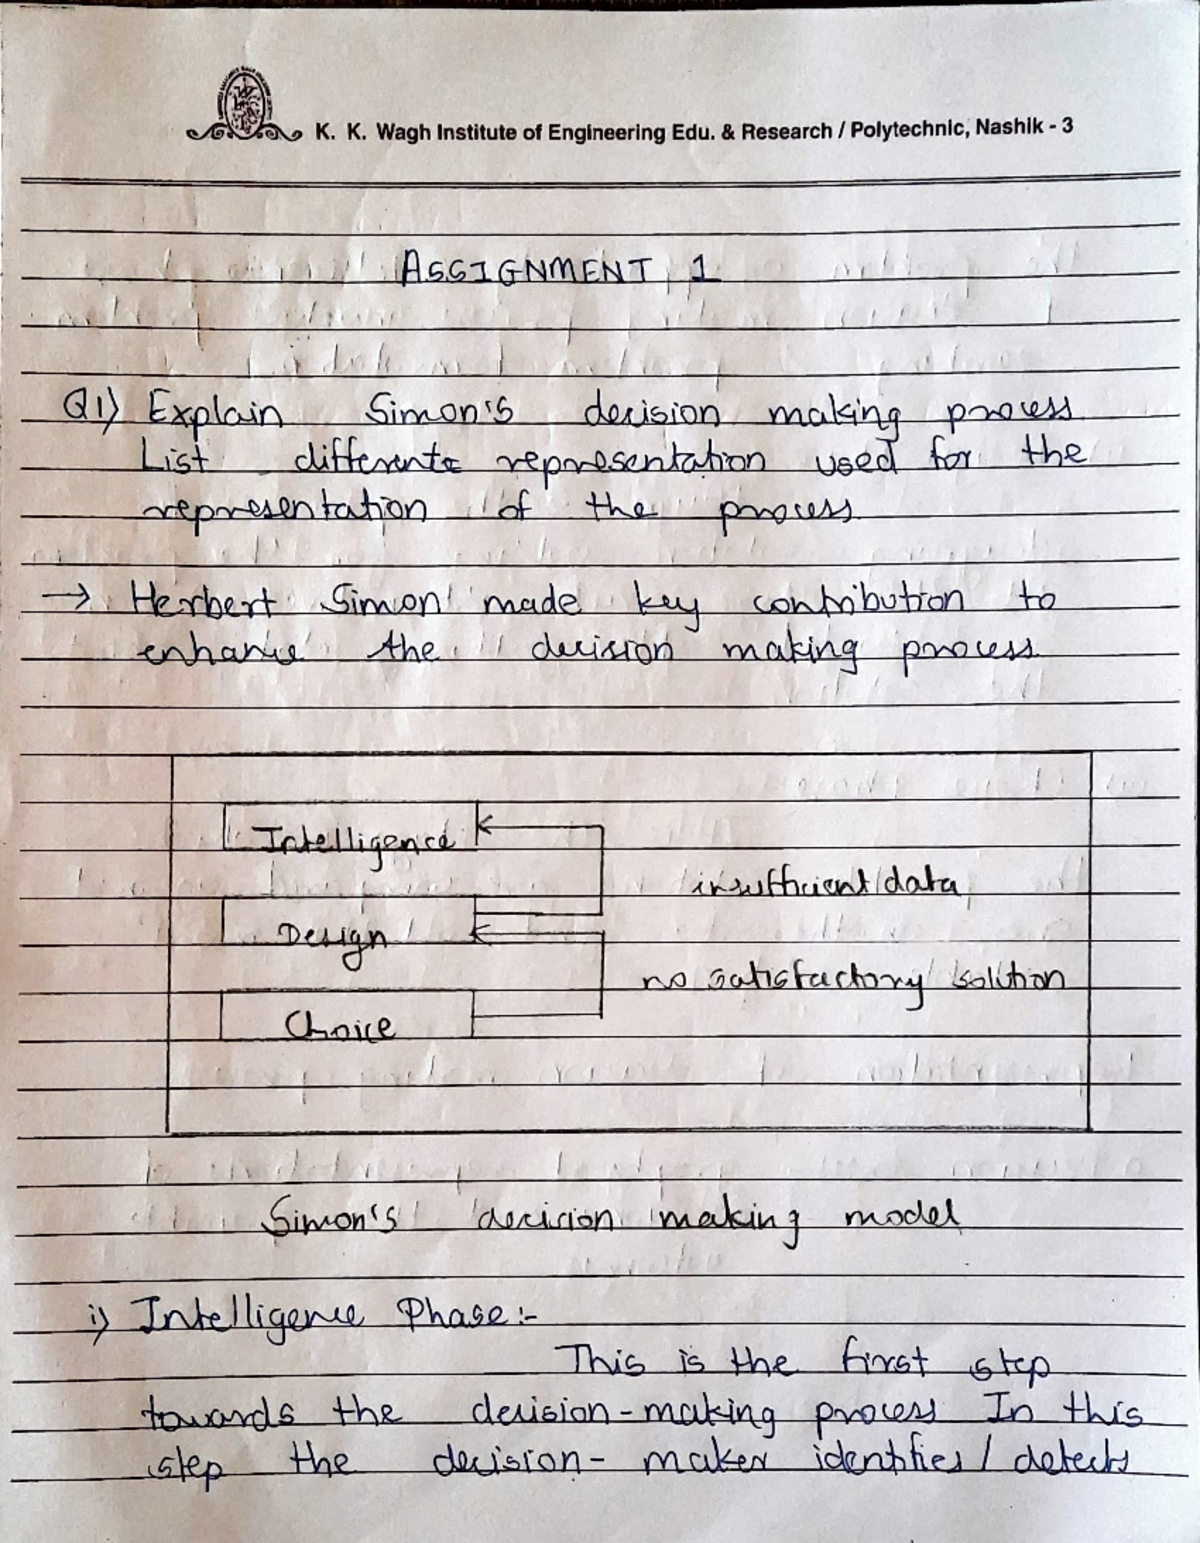 K. K. Wagh Institute of Engineering Edu. & Research / Polytechnic, Nashik - 3
ASSIGNMENT 1
Q1) Explain Simon's decision making process
List differents representation used for the
representation of the process
→ Herbert Simon made key contribution to
enhance the decision making process
Intelligence
insufficient data
Design
no satisfactory solution
Choice
Simon's decision making model
i) Intelligence Phase :-
This is the first step
towards the decision-making process In this
step the decision- maker identifies / detects